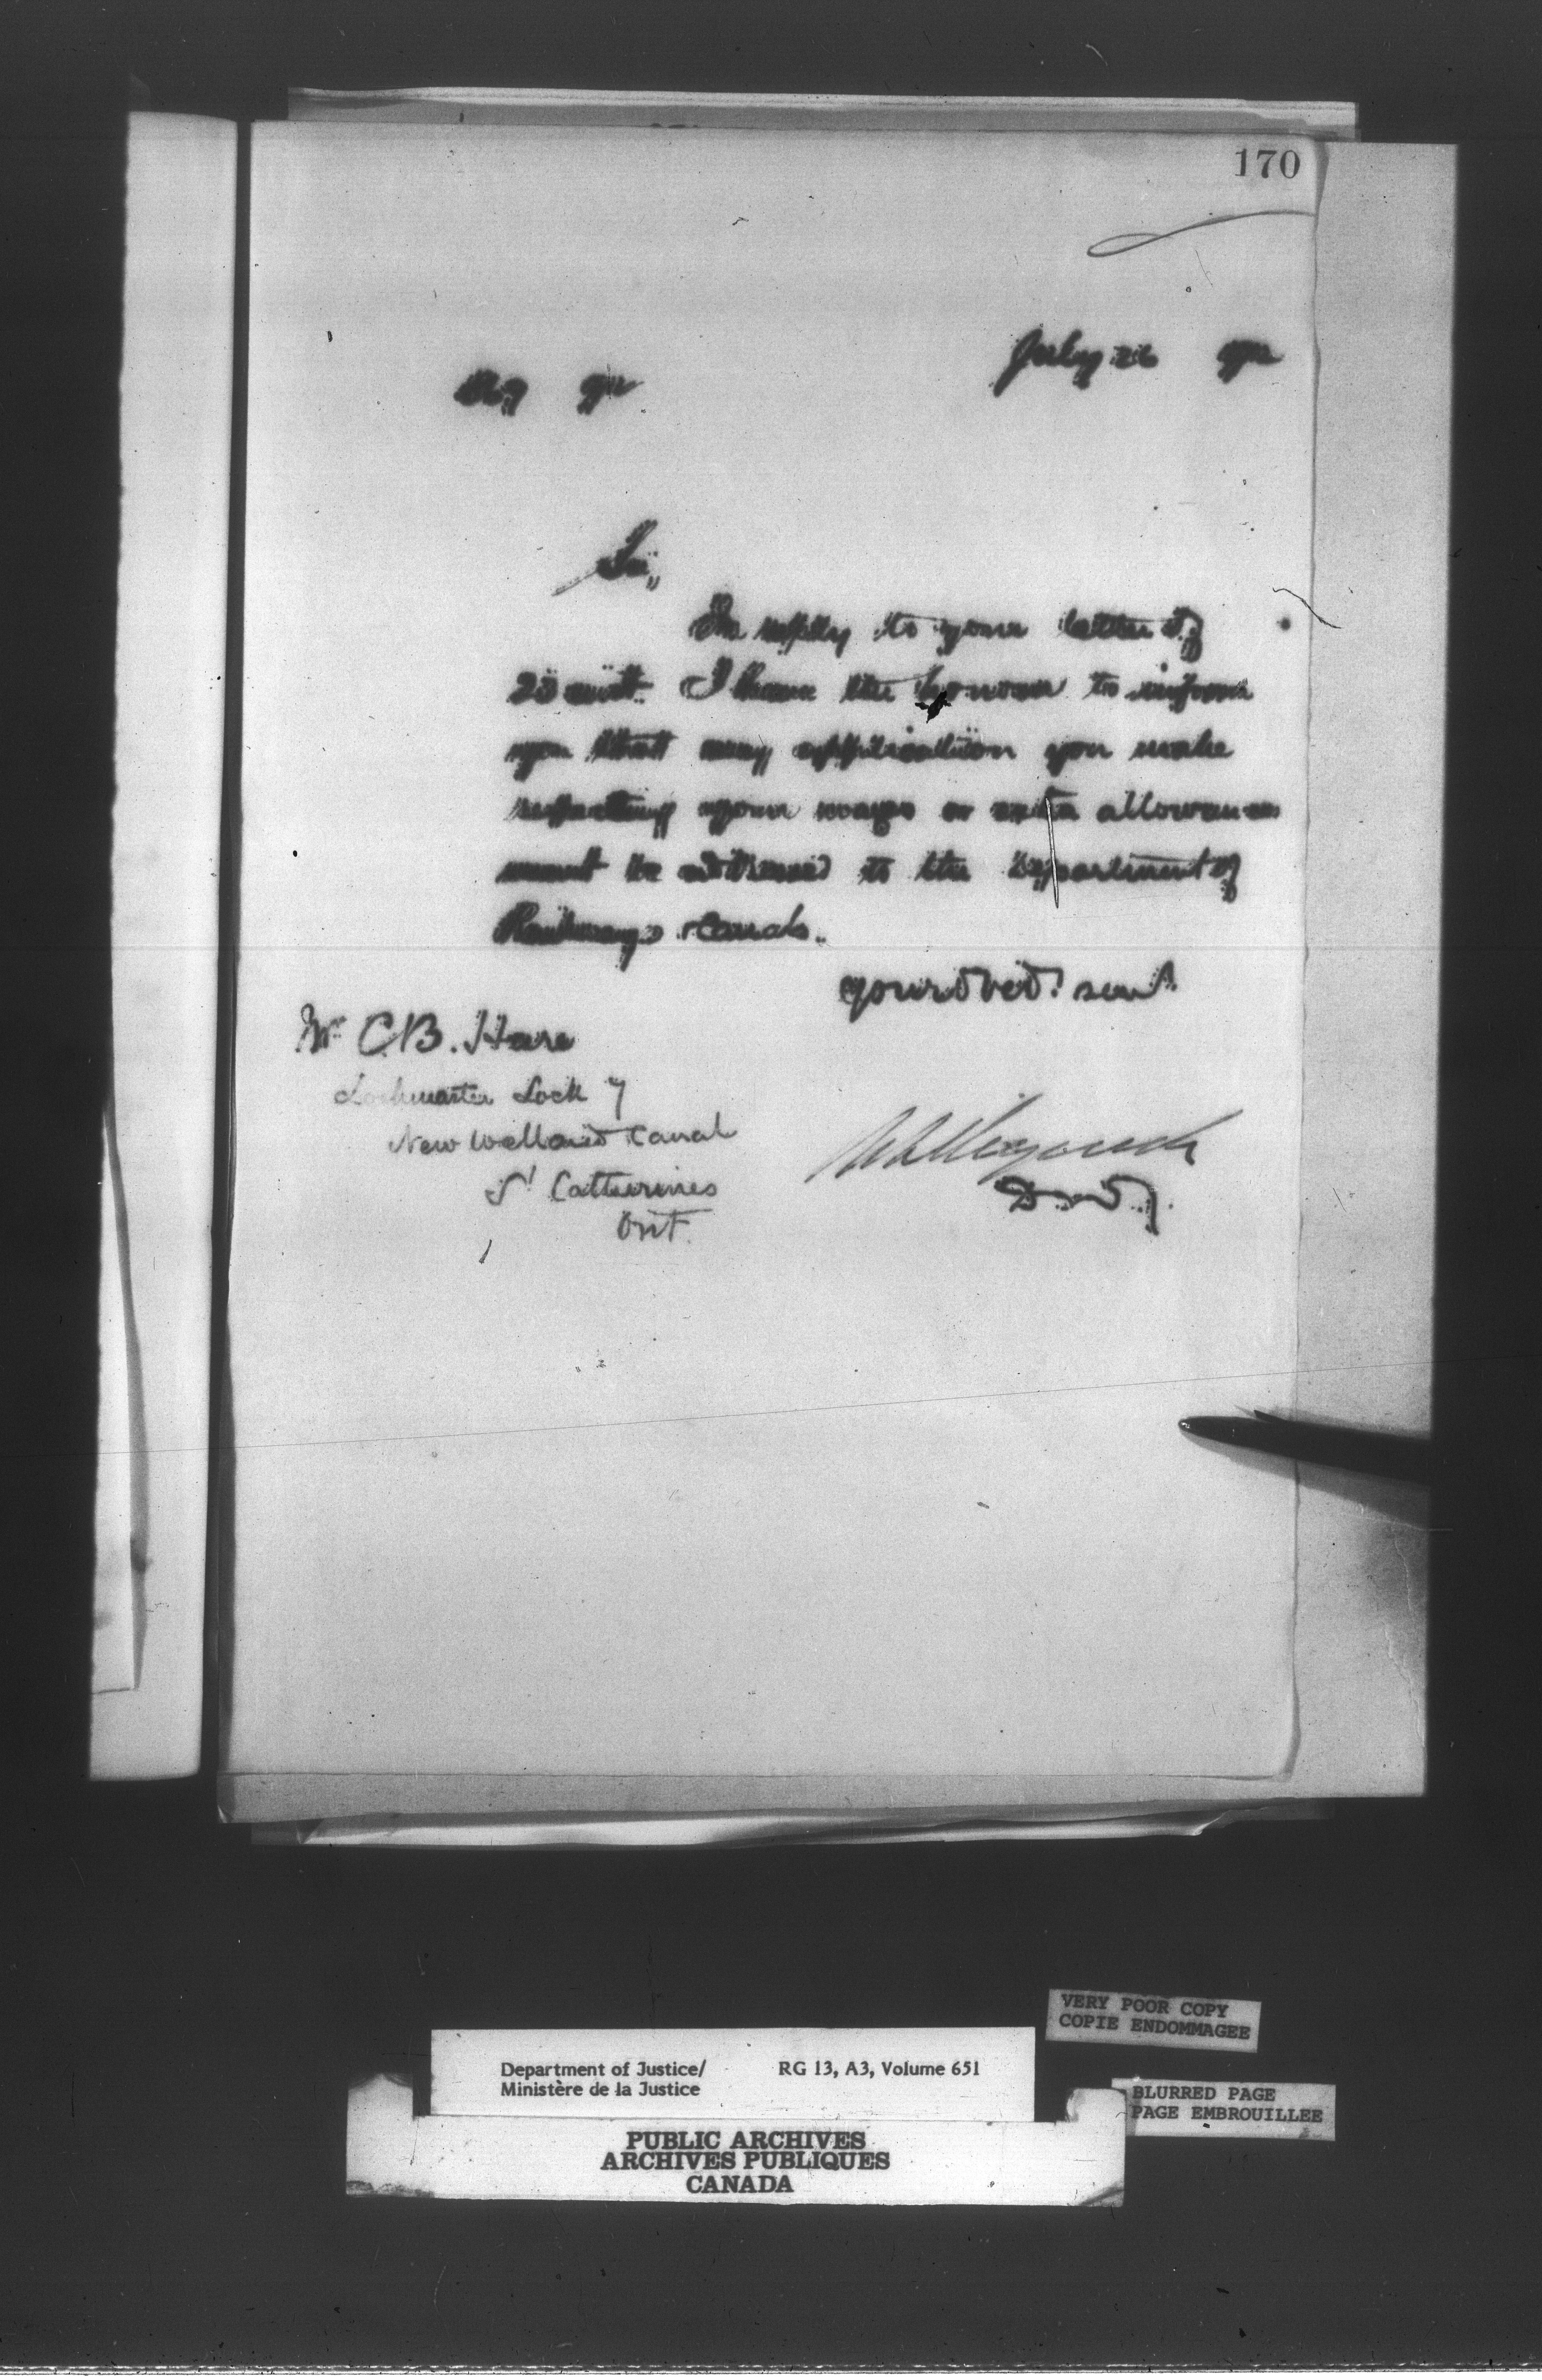 170
July 26 92
869 92
Sir,
In reply to your letter of
23 inst. I have the honour to inform
you that any application you make
respecting your wages or extra allowances
must be addressed to the Department of
Railways & Canals.
Your obed. servt.
Mr C.B. Hare
Lockmaster Lock 7
New Welland Canal
St Catherines
Ont.
D.M.J.
VERY POOR COPY
COPIE ENDOMMAGEE
Department of Justice/ RG 13, A3, Volume 651
Ministère de la Justice
BLURRED PAGE
PAGE EMBROUILLEE
PUBLIC ARCHIVES
ARCHIVES PUBLIQUES
CANADA